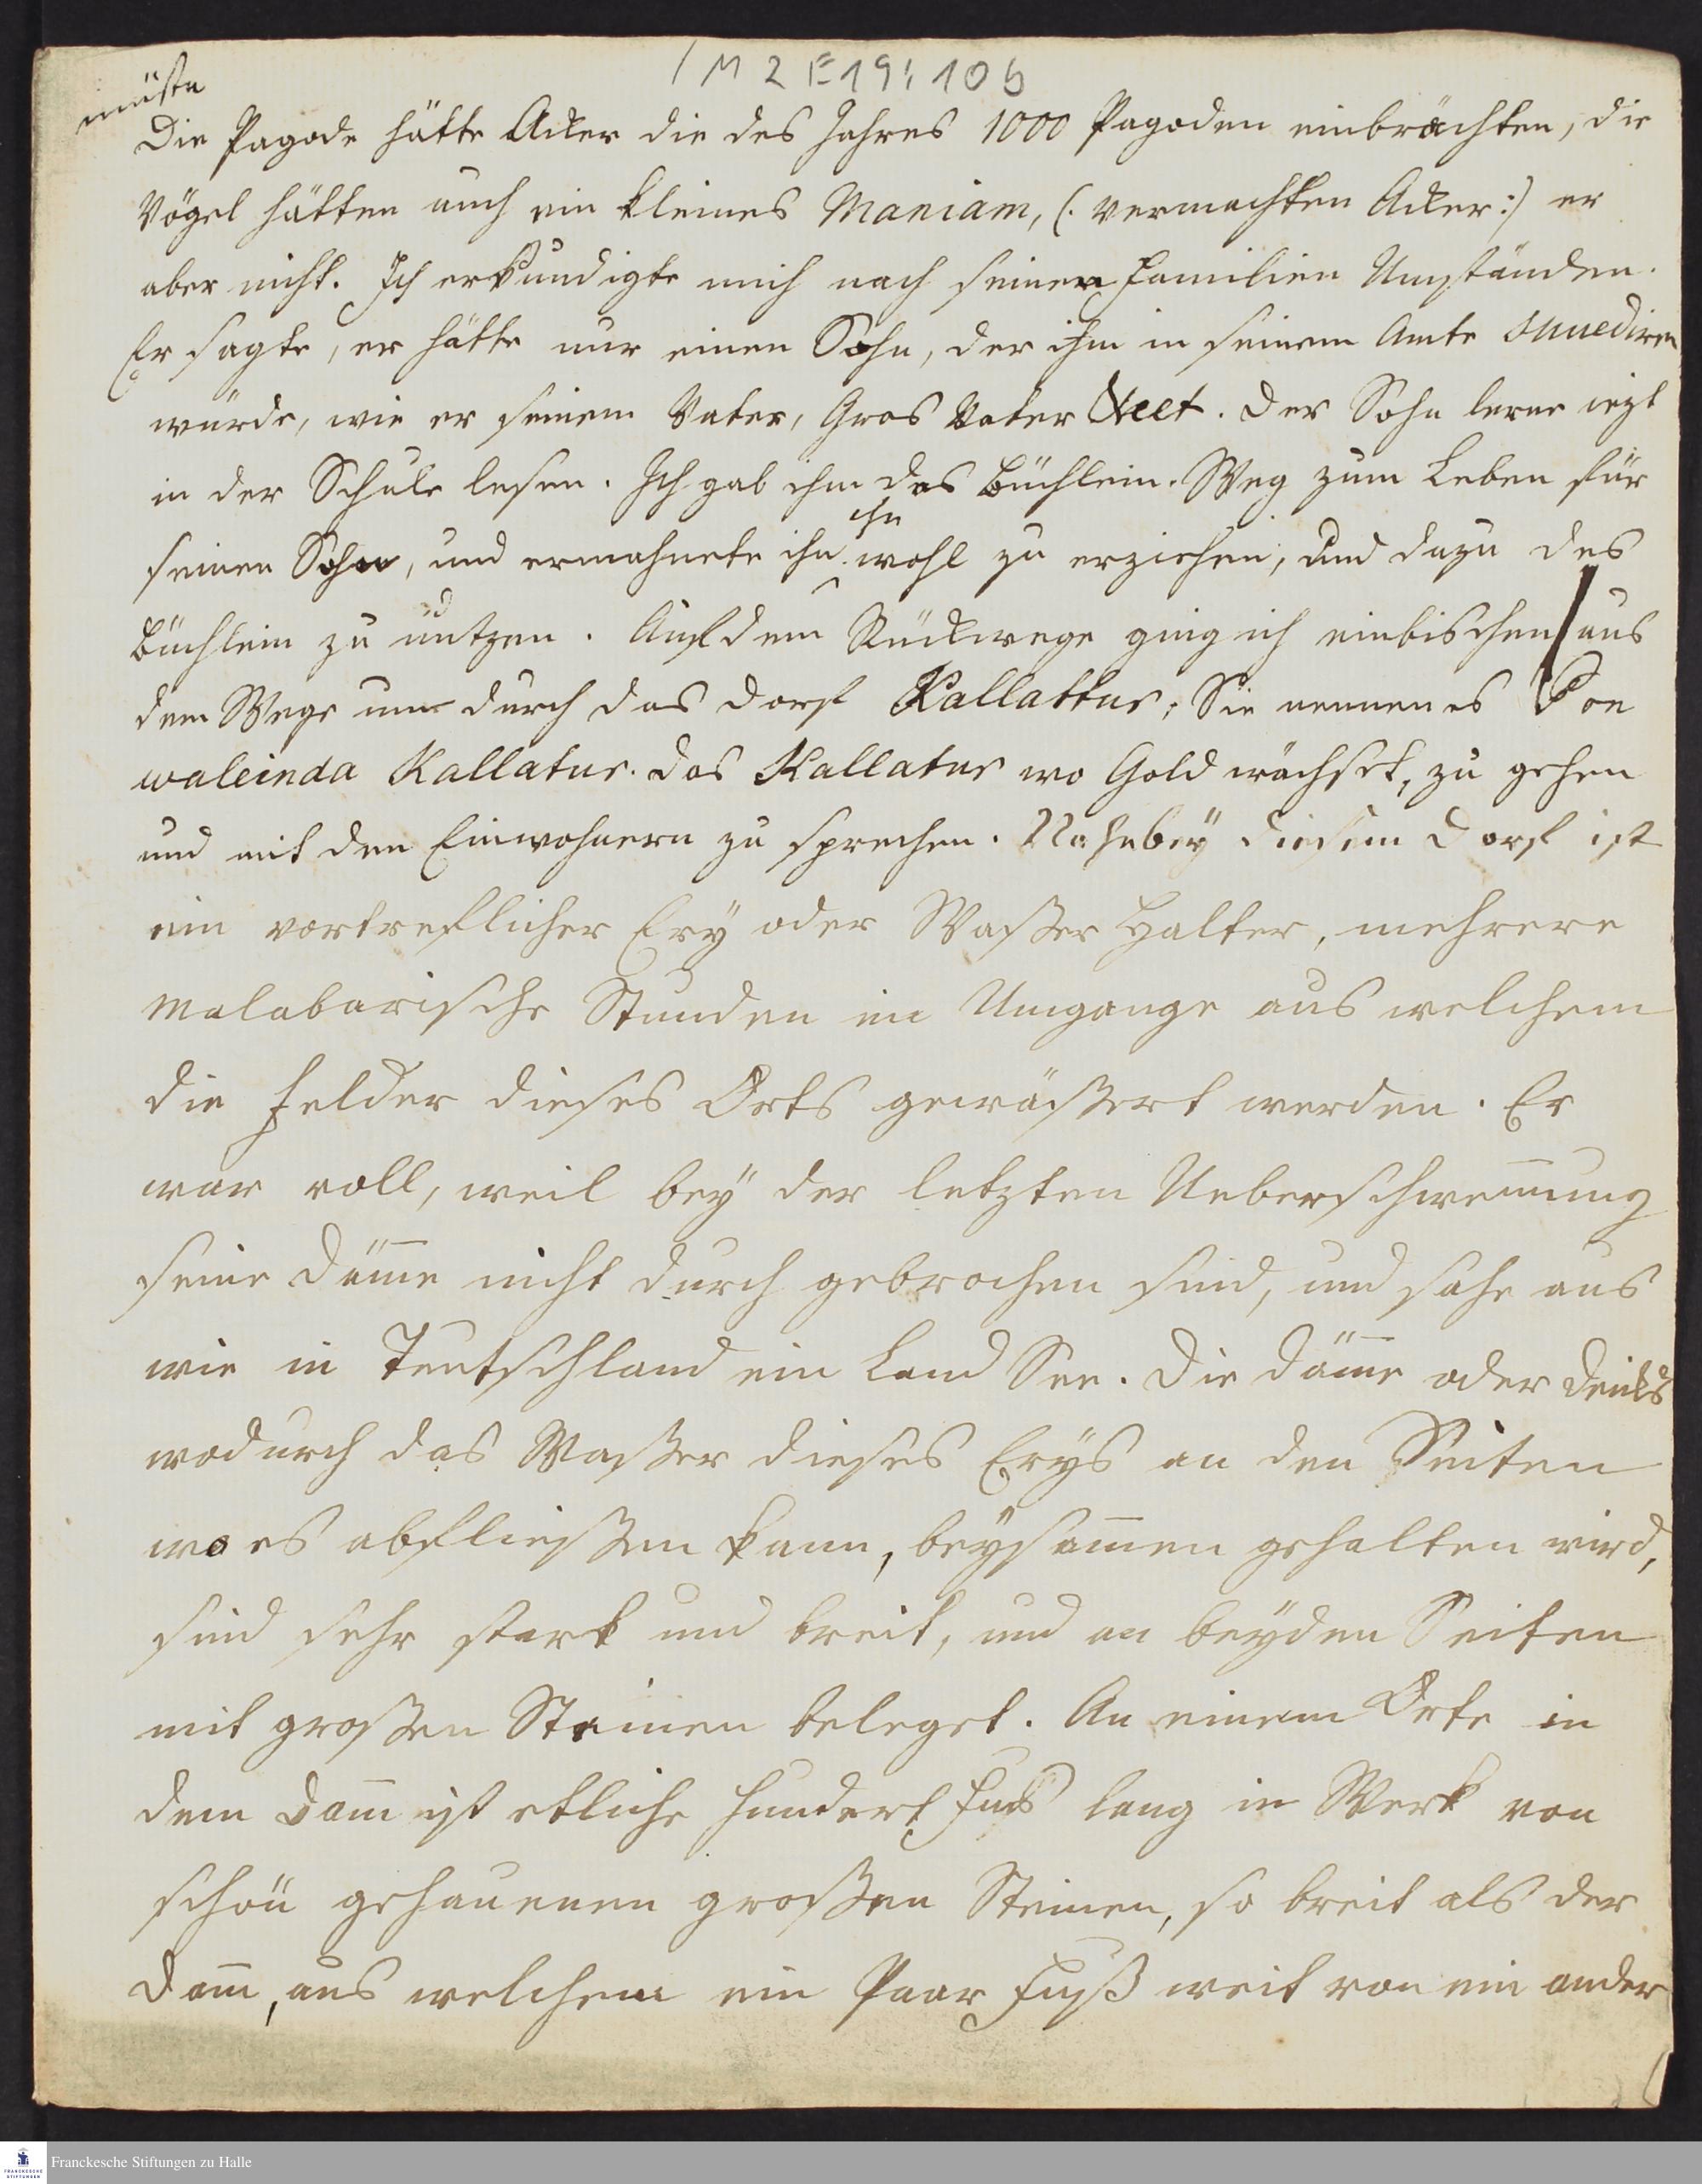 1 M 2 E 19 : 10 b
müste
Die Pagode hätte Acker die des Jahres 1000 Pagoden einbrächten, die
Vögel hätten auch ein kleines Maniam, (: vermachten Acker:) er
aber nicht. Ich erkundigte mich nach seinen Familien Umständen.
Er sagte, er hätte nur einen Sohn, der ihm in seinem Amte
würde, wie er seinem Vater, Gros Vater. Der Sohn lerne iezt
in der Schule lesen. Ich gab ihm das Büchlein. Weg zum Leben für
ihn
seinen Sohn, und ermahnete ihn wohl zu erziehen, und dazu das
Büchlein zu nützen. Auf dem Rückwege ging ich einbischen aus
dem Wege um durch das Dorf Kallattur; Sie nennen es Pon
waleinda Kallatur. das Kallatur wo Gold wächset, zu gehen
und mit den Einwohnern zu sprechen. Nahebey diesem Dorf ist
ein vortreflicher Ery oder Waßer Halter, mehrere
Malabarische Stunden im Umgange aus welchem
die Felder dieses Orts gewäßert werden. Er
war voll, weil bey der letzten Ueberschwem̄ung
seine Däm̄e nicht durch gebrochen sind, und sahe aus
wie in Teutschland ein Land See. Die Däm̄e oder Deichs
wodurch das Waßer dieses Erys an den Seiten
wo es abfließen kann, beysam̄en gehalten wird,
sind sehr stark und breit, und an beyden Seiten
mit großen Steinen beleget. An einem Orte in
dem Dam̄ ist etliche hundert Fuß lang ein Werk von
schön gehauenen großen Steinen, so breit als der
Dam̄, aus welchem ein Paar Fuß weit von ein ander
Franckesche Stiftungen zu Halle